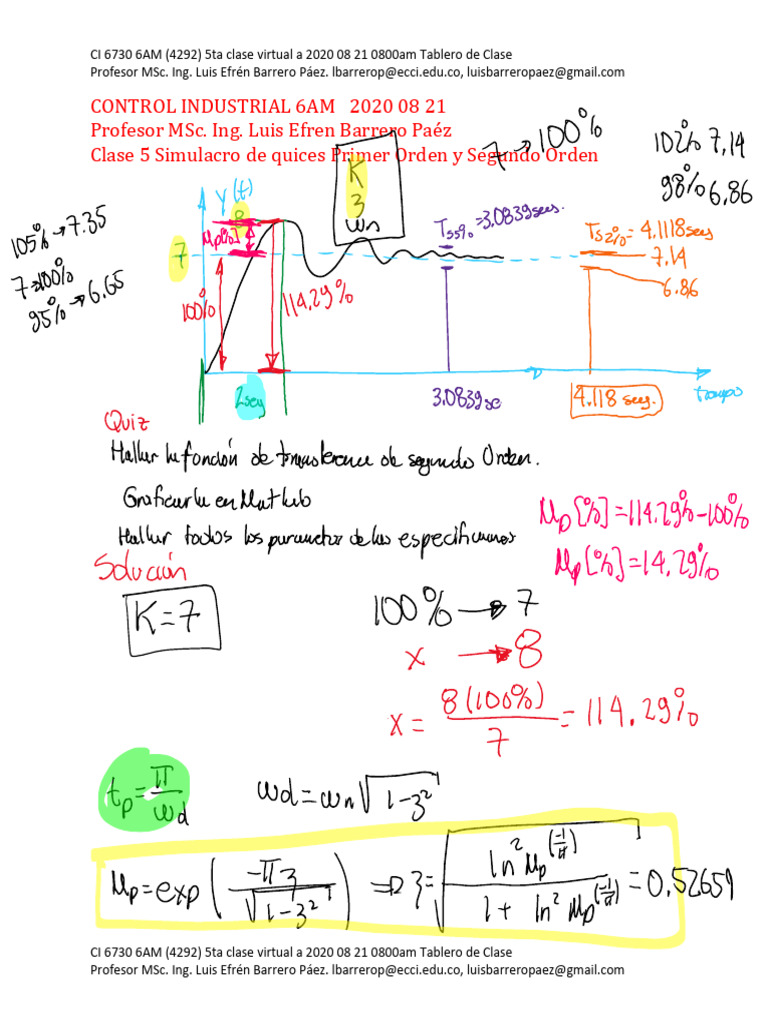 CI 6730 6AM (4292) 5ta clase virtual a 2020 08 21 0800am Tablero de Clase
Profesor MSc. Ing. Luis Efrén Barrero Páez. lbarrerop@ecci.edu.co, luisbarreropaez@gmail.com
CONTROL INDUSTRIAL 6AM   2020 08 21
Profesor MSc. Ing. Luis Efren Barrero Paéz
Clase 5 Simulacro de quices Primer Orden y Segundo Orden
7 → 100%
102% 7,14
98% 6,86
K
3
wn
Y(t)
8
Mp[%]
7
105% → 7.35
7 → 100%
95% → 6.65
100%
114.29%
Ts5% = 3.0839 seg.
Ts2% = 4.1118 seg
7.14
6.86
2 seg
3.0839 se
4.118 seg.
tiempo
Quiz
Hallar la función de transferencia de segundo Orden.
Graficarla en Matlab
Hallar todos los parametros de las especificaciones
Mp[%]=114.29%-100%
Mp[%]=14.29%
Solución
K=7
100% → 7
x → 8
x = 8(100%)/7 = 114.29%
tp = π/wd
wd = wn√(1-3²)
Mp = exp(-π3/√(1-3²)) ⇒ 3 = √(ln² Mp^(-1/π)/(1 + ln² Mp^(-1/π))) = 0.52659
CI 6730 6AM (4292) 5ta clase virtual a 2020 08 21 0800am Tablero de Clase
Profesor MSc. Ing. Luis Efrén Barrero Páez. lbarrerop@ecci.edu.co, luisbarreropaez@gmail.com